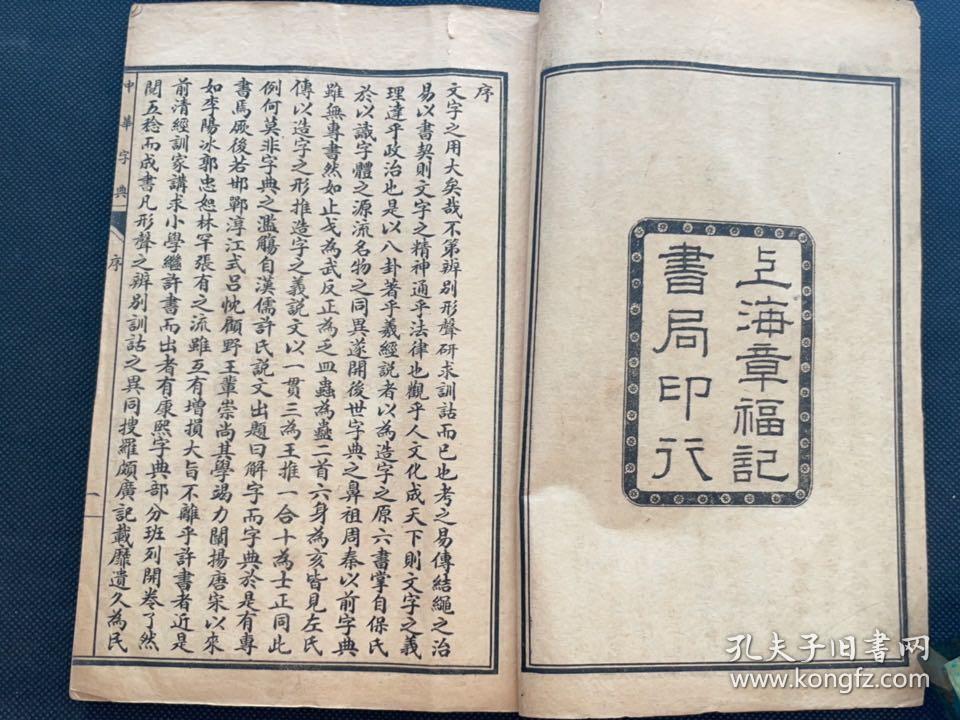 上海章福記
書局印行
序
文字之用大矣哉不第辨別形聲研求訓詁而已也考之易傳結繩之治
易以書契則文字之精神通乎法律也觀乎人文化成天下則文字之義
理達乎政治也是以八卦著乎羲經說者以為造字之原六書掌自保氏
於以識字體之源流名物之同異遂開後世字典之鼻祖周秦以前字典
雖無專書然如止戈為武反正為乏皿蟲為蠱二首六身為亥皆見左氏
傳以造字之形推造字之義說文以一貫三為王推一合十為士正同此
例何莫非字典之濫觴自漢儒許氏說文出題曰解字而字典於是有專
書焉厥後若邯鄲淳江式呂忱顧野王輩崇尚其學竭力闡揚唐宋以來
如李陽冰郭忠恕林罕張有之流雖互有增損大旨不離乎許書者近是
前清經訓家講求小學繼許書而出者有康熙字典部分班列開卷了然
閱五稔而成書凡形聲之辨別訓詁之異同搜羅頗廣記載靡遺久為民
中華字典
序
一
孔夫子旧书网
www.kongfz.com